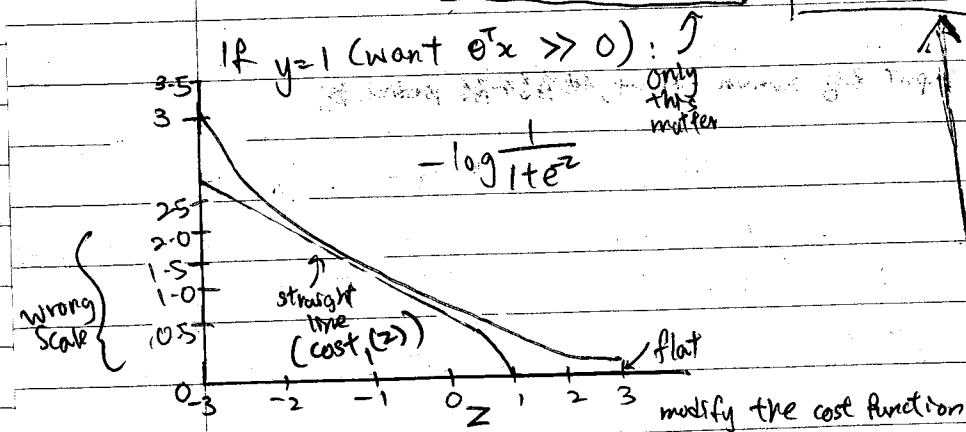 If y=1 (want θᵀx >> 0):
only
this
matter
-log 1/(1+e^-z)
3.5
3
2.5
2.0
1.5
1.0
0.5
0
wrong
scale
straight
line
(cost₁(z))
flat
-3 -2 -1 0 1 2 3
z
modify the cost function